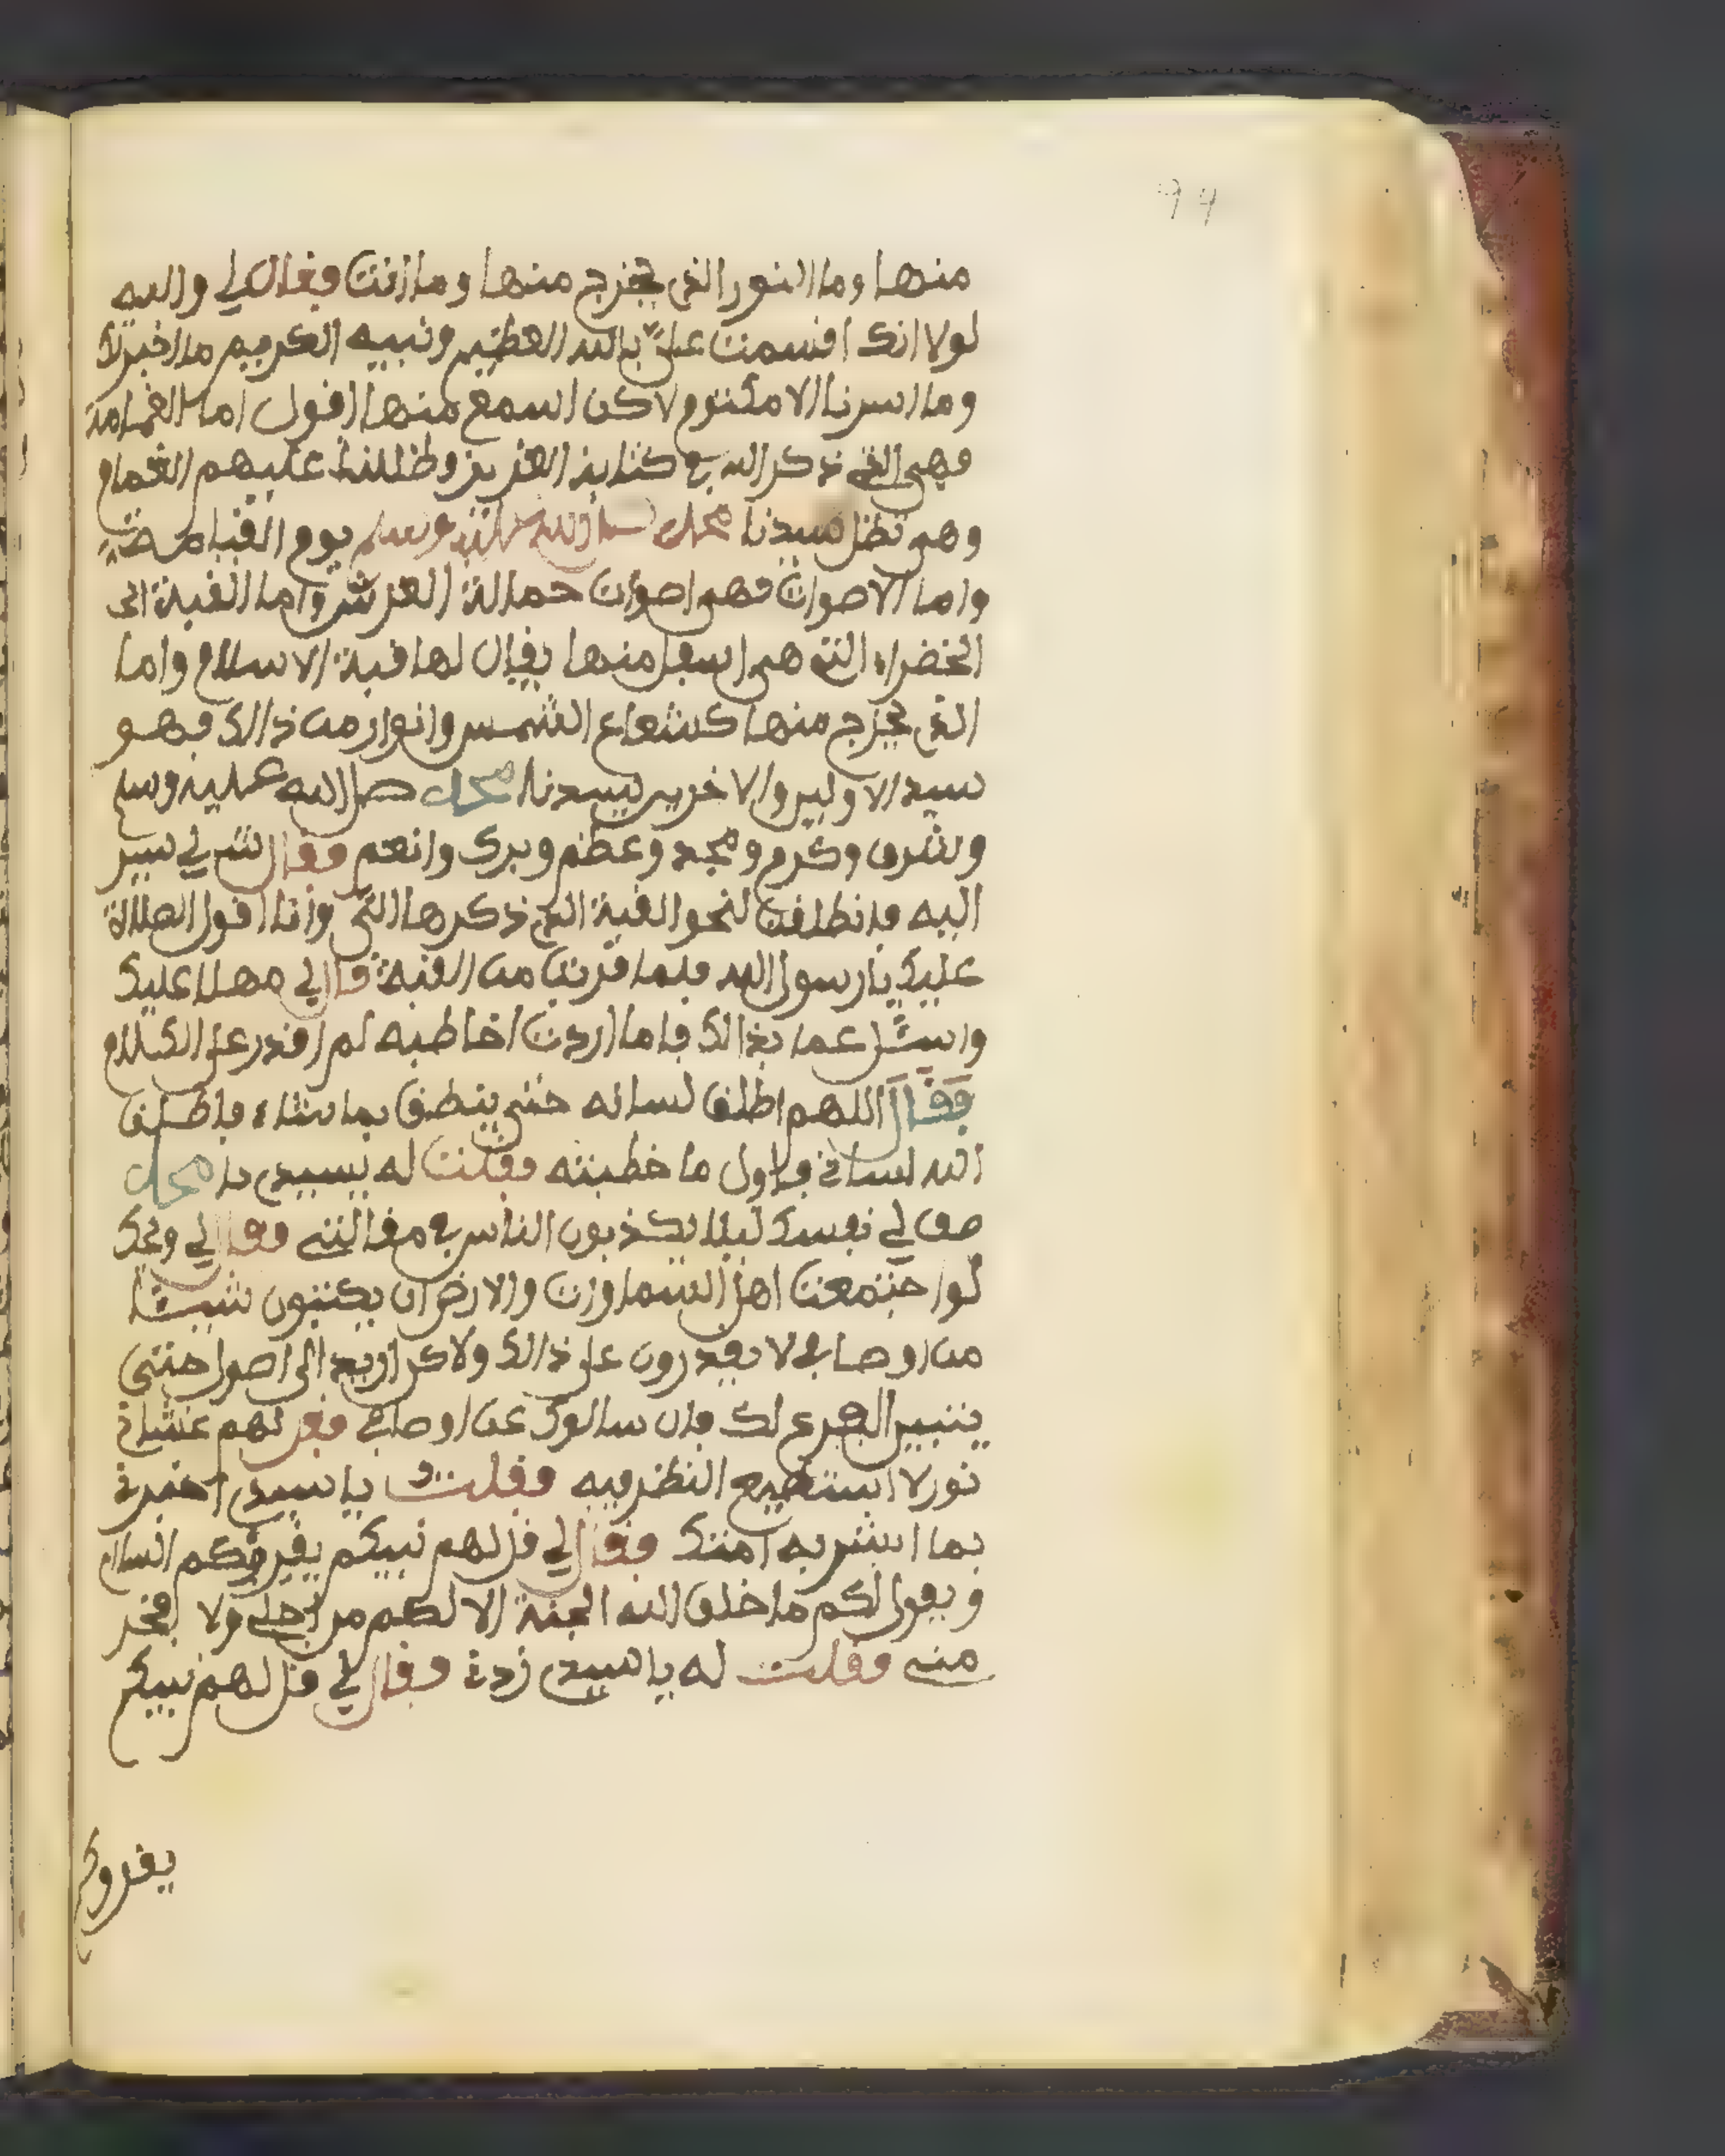 94
منها وما النور الذي يخرج منها وما انت فقال لي والله
لولا انك اقسمت علي بالله العظيم ونبيه الكريم ما اخبرتك
وما اسرنا الا مكتوم لاكن اسمع منها اقول اما الغمامة
فهي التي ذكر الله في كتابه العزيز وظللنا عليهم الغمام
وهي تظل سيدنا محمد صلى الله عليه وسلم يوم القيامة
واما الاصوات فهي اصوات حمالة العرش واما القبة
الخضراء التي هي اسفل منها يقال لها قبة الاسلام واما
الذي يخرج منها كشعاع الشمس وانوار من ذالك فهو
سيد الاولين والاخرين سيدنا محمد صلى الله عليه وسلم
وشرف وكرم ومجد وعظم وبرك وانعم فقال لي سير
اليه فانطلقت لنحو القبة التي ذكرها التي وانا اقول الصلاة
عليك يا رسول الله فلما قربت من القبة قال لي مهلا عليك
عما بذالك فاما اردت اخاطبه لم اقدر على الكلام
فقال اللهم اطلق لسانه حتى ينطق بما شاء فاطلق
الله لساني فاول ما خطبته فقلت له يسيدي يا محمد
صف لي نفسك ليلا يكذبون الناس في مقالتي فقال لي ويحك
لو اجتمعت اهل السماوات والارض ان يكتبون شيئا
من اوصافي لا يقدرون على ذالك ولاكن اريد الى اصول حتى
يتبين لك فان سالوك عن اوصافي فقل لهم غشاني
نور لا استطيع النظر فيه فقلت يا سيدي اخبرني
بما ابشر به امتك فقال لي قل لهم نبيكم يقروكم السلام
ويقول لكم ما خلق الله الجنة الا لكم من اجلي ولا فخر
مني فقلت له يا سيدي زدني فقال لي قل لهم نبيكم
يقروكم